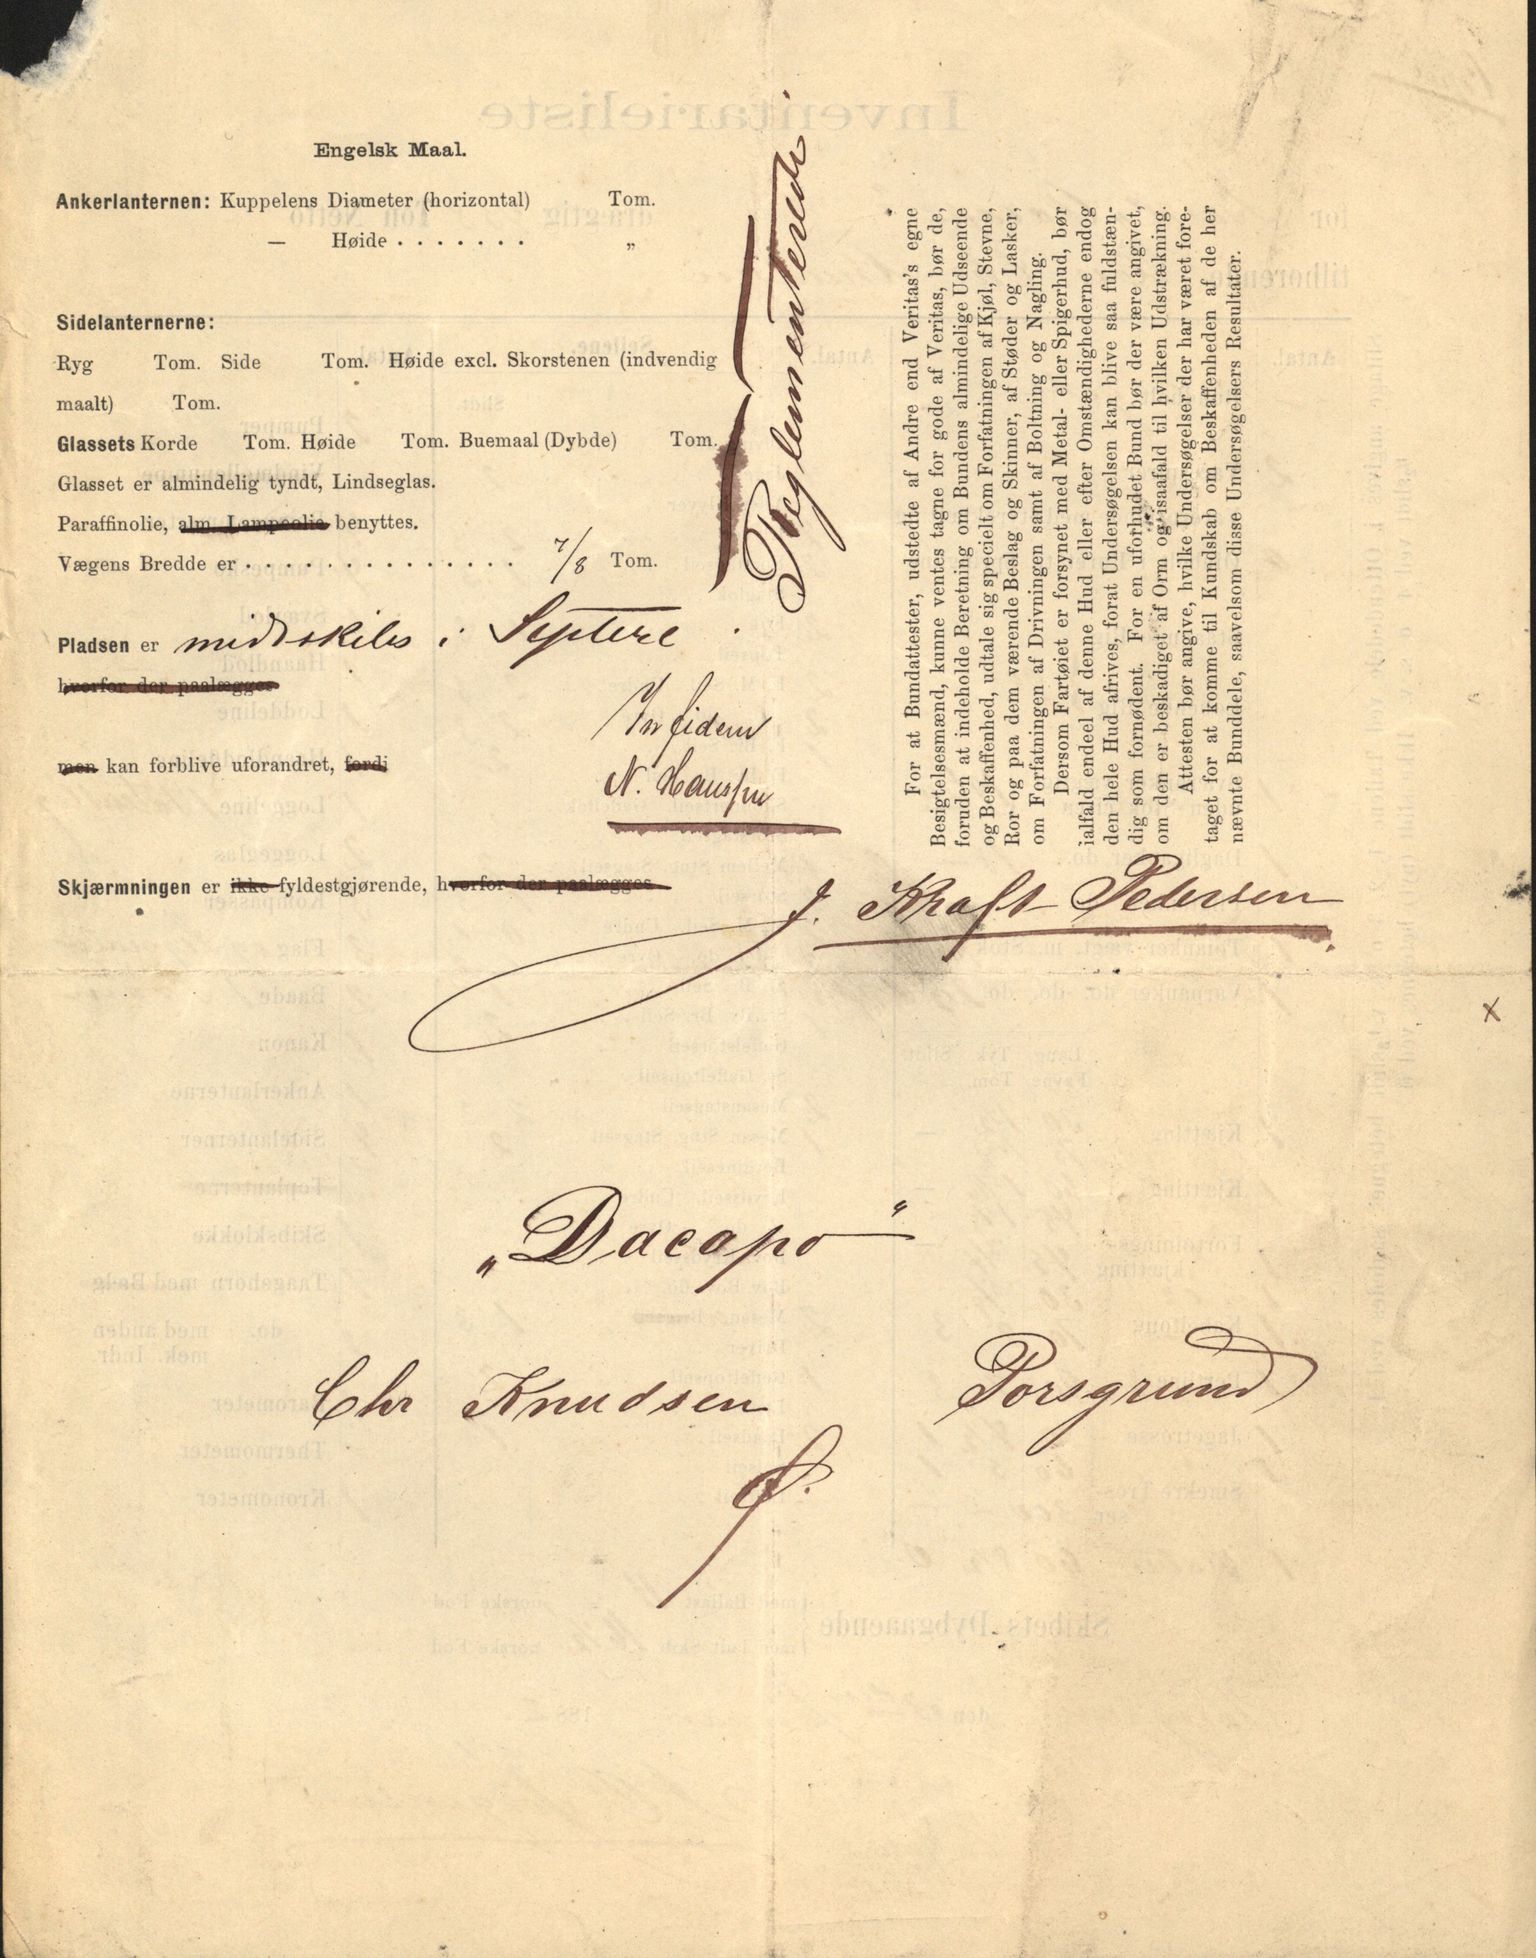 Engelsk Maal.
Ankerlanternen: Kuppelens Diameter (horizontal) Tom.
— Høide . . . . . . . „
Sidelanternerne:
Ryg Tom. Side Tom. Høide excl. Skorstenen (indvendig
maalt) Tom.
Glassets Korde Tom. Høide Tom. Buemaal (Dybde) Tom.
Glasset er almindelig tyndt, Lindseglas.
Paraffinolie, alm. Lampeolie benyttes.
Vægens Bredde er . . . . . . . . . . . . . . . 7/8 Tom.
Reglementerede
Pladsen er midtskibs i
hvorfor der paalægges
In fidem
men kan forblive uforandret, fordi
N. Hansen
Skjærmningen er ikke fyldestgjørende, hvorfor der paalægges
For at Bundattester, udstedte af Andre end Veritas's egne
Besigtelsesmænd, kunne ventes tagne for gode af Veritas, bør de,
foruden at indeholde Beretning om Bundens almindelige Udseende
og Beskaffenhed, udtale sig specielt om Forfatningen af Kjøl, Stevne,
Ror og paa dem værende Beslag og Skinner, af Støder og Lasker,
om Forfatningen af Drivningen samt af Boltning og Nagling.
Dersom Fartøiet er forsynet med Metal- eller Spigerhud, bør
ialfald endeel af denne Hud eller efter Omstændighederne endog
den hele Hud afrives, forat Undersøgelsen kan blive saa fuldstæn-
dig som fornødent. For en uforhudet Bund bør der være angivet,
om den er beskadiget af Orm og isaafald til hvilken Udstrækning.
Attesten bør angive, hvilke Undersøgelser der har været fore-
taget for at komme til Kundskab om Beskaffenheden af de her
nævnte Bunddele, saavelsom disse Undersøgelsers Resultater.
J. Kraft Pedersen
x
„Dacapo“
Chr Knudsen Porsgrund